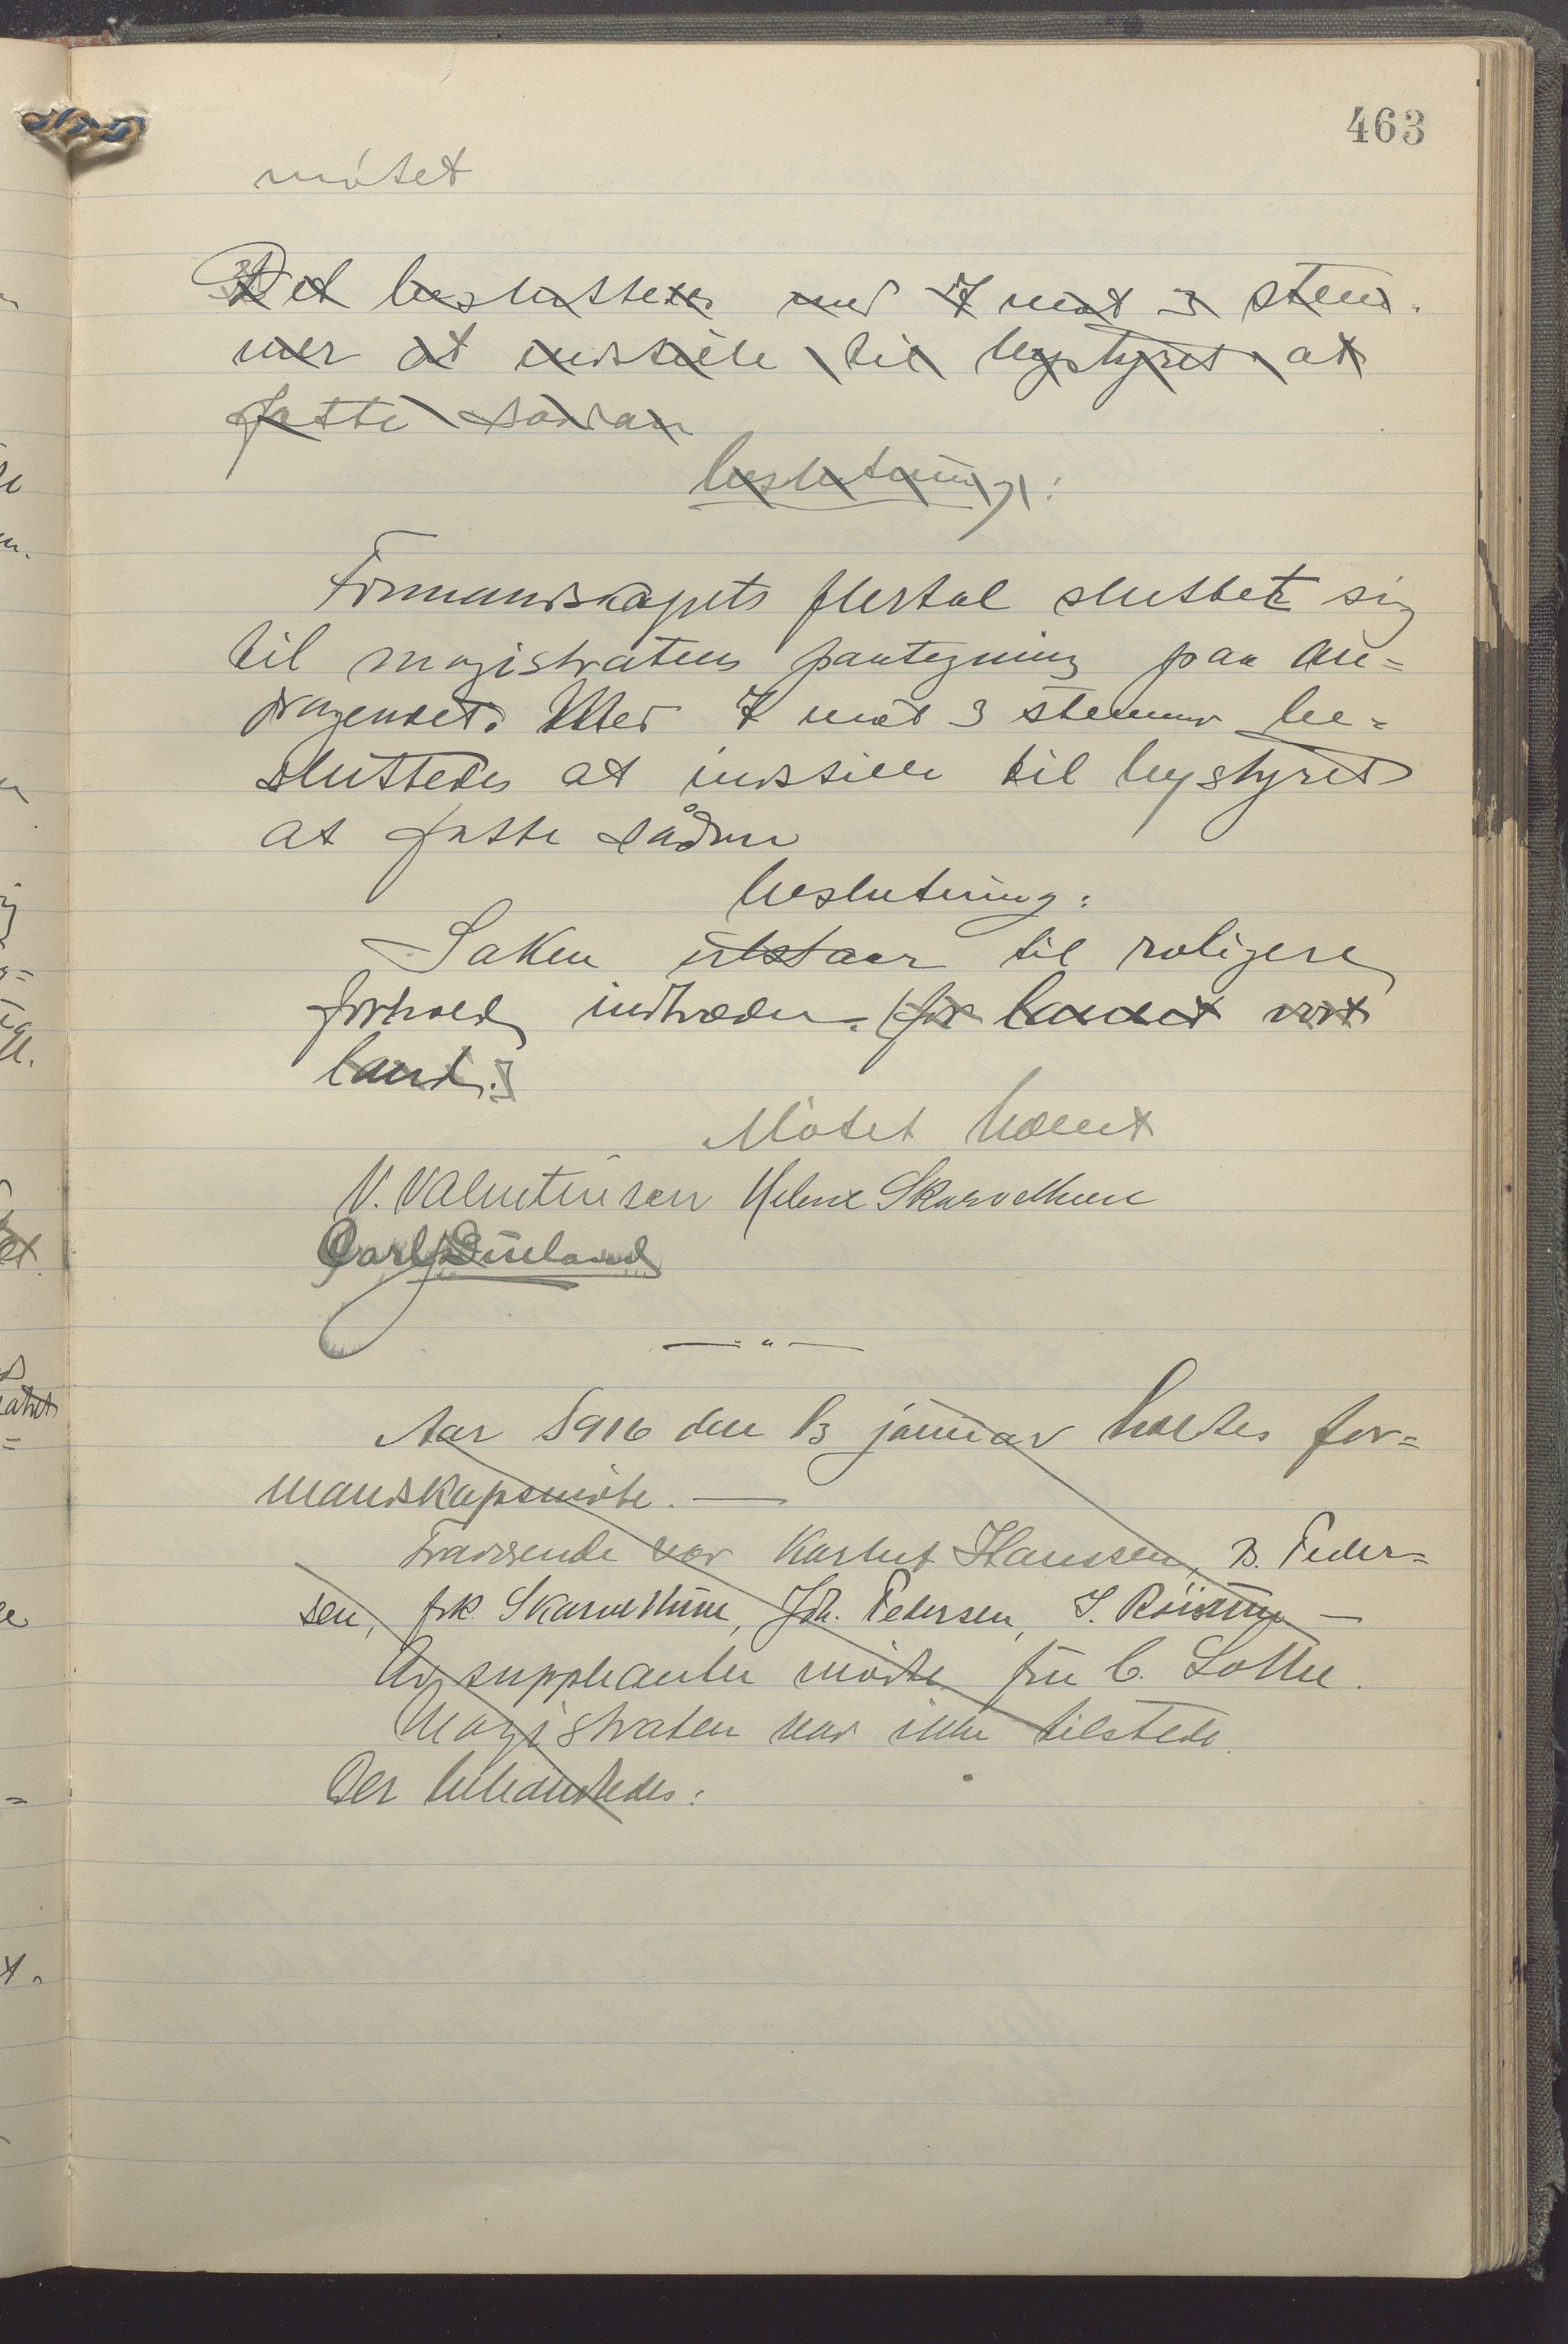 463
møtet
Det besluttedes med 7 mot 3 stem-
mer at indstille til bystyret at
fatte sådan
beslutning:
Formandskapets flertal sluttet sig
til magistratens paategning paa an=
dragendet. Med 7 mot 3 stemmer be=
sluttedes at indstille til bystyret
at fatte sådan
beslutning:
Saken utstaar til roligere
forhold indtræder. (for landet vort
land.)
Møtet hævet
V. Valentinsen Helene Skarvethun
Carl
— " —
Aar 1916 den 13 januar holdtes for=
mandskapsmøte. —
Fraværende var Karluf Hanssen, B. Peder=
sen, frk. Skarvethun, Joh. Pedersen, —
Av suppleanter møtte fru C. Lothe.
Magistraten var ikke tilstede.
Der behandledes: